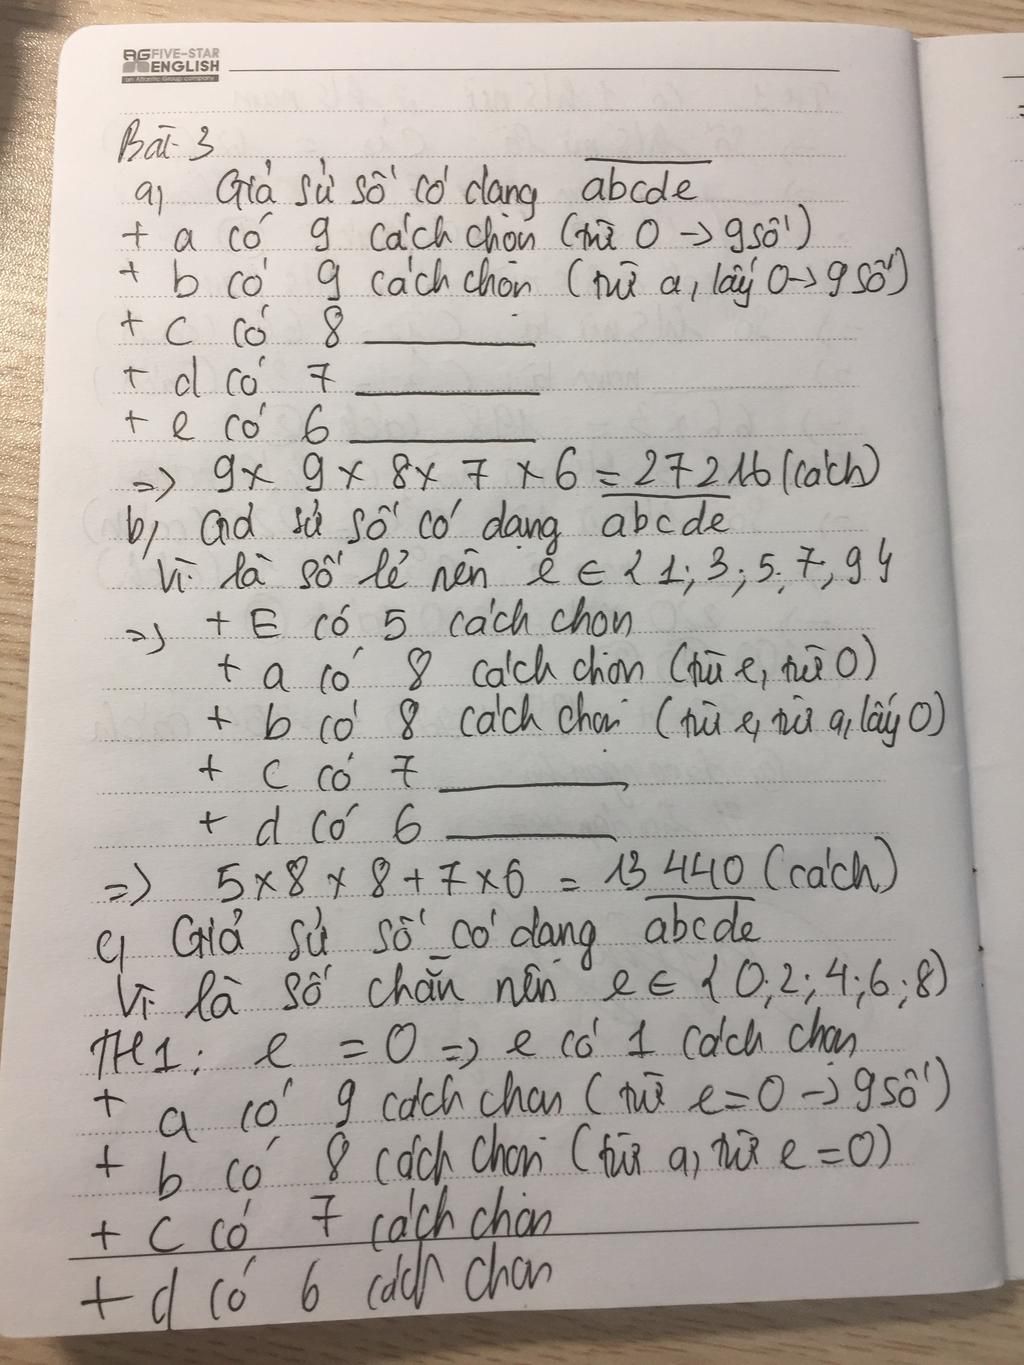 AG FIVE-STAR
ENGLISH
an Atlantic Group company
Bài 3
a, Giả sử số có dạng abcde
+ a có 9 cách chọn (trừ 0 -> 9 số)
+ b có 9 cách chọn (trừ a, lấy 0 -> 9 số)
+ c có 8
+ d có 7
+ e có 6
=> 9 x 9 x 8 x 7 x 6 = 27216 (cách)
b, Giả sử số có dạng abcde
Vì là số lẻ nên e ∈ { 1; 3; 5; 7, 9 }
=> + E có 5 cách chọn
+ a có 8 cách chọn (trừ e, trừ 0)
+ b có 8 cách chọn (trừ e, trừ a, lấy 0)
+ c có 7
+ d có 6
=> 5 x 8 x 8 + 7 x 6 = 13 440 (cách)
c, Giả sử số có dạng abcde
Vì là số chẵn nên e ∈ { 0; 2; 4; 6; 8)
TH1: e = 0 => e có 1 cách chọn
+ a có 9 cách chọn (trừ e = 0 -> 9 số)
+ b có 8 cách chọn (trừ a, trừ e = 0)
+ c có 7 cách chọn
+ d có 6 cách chọn